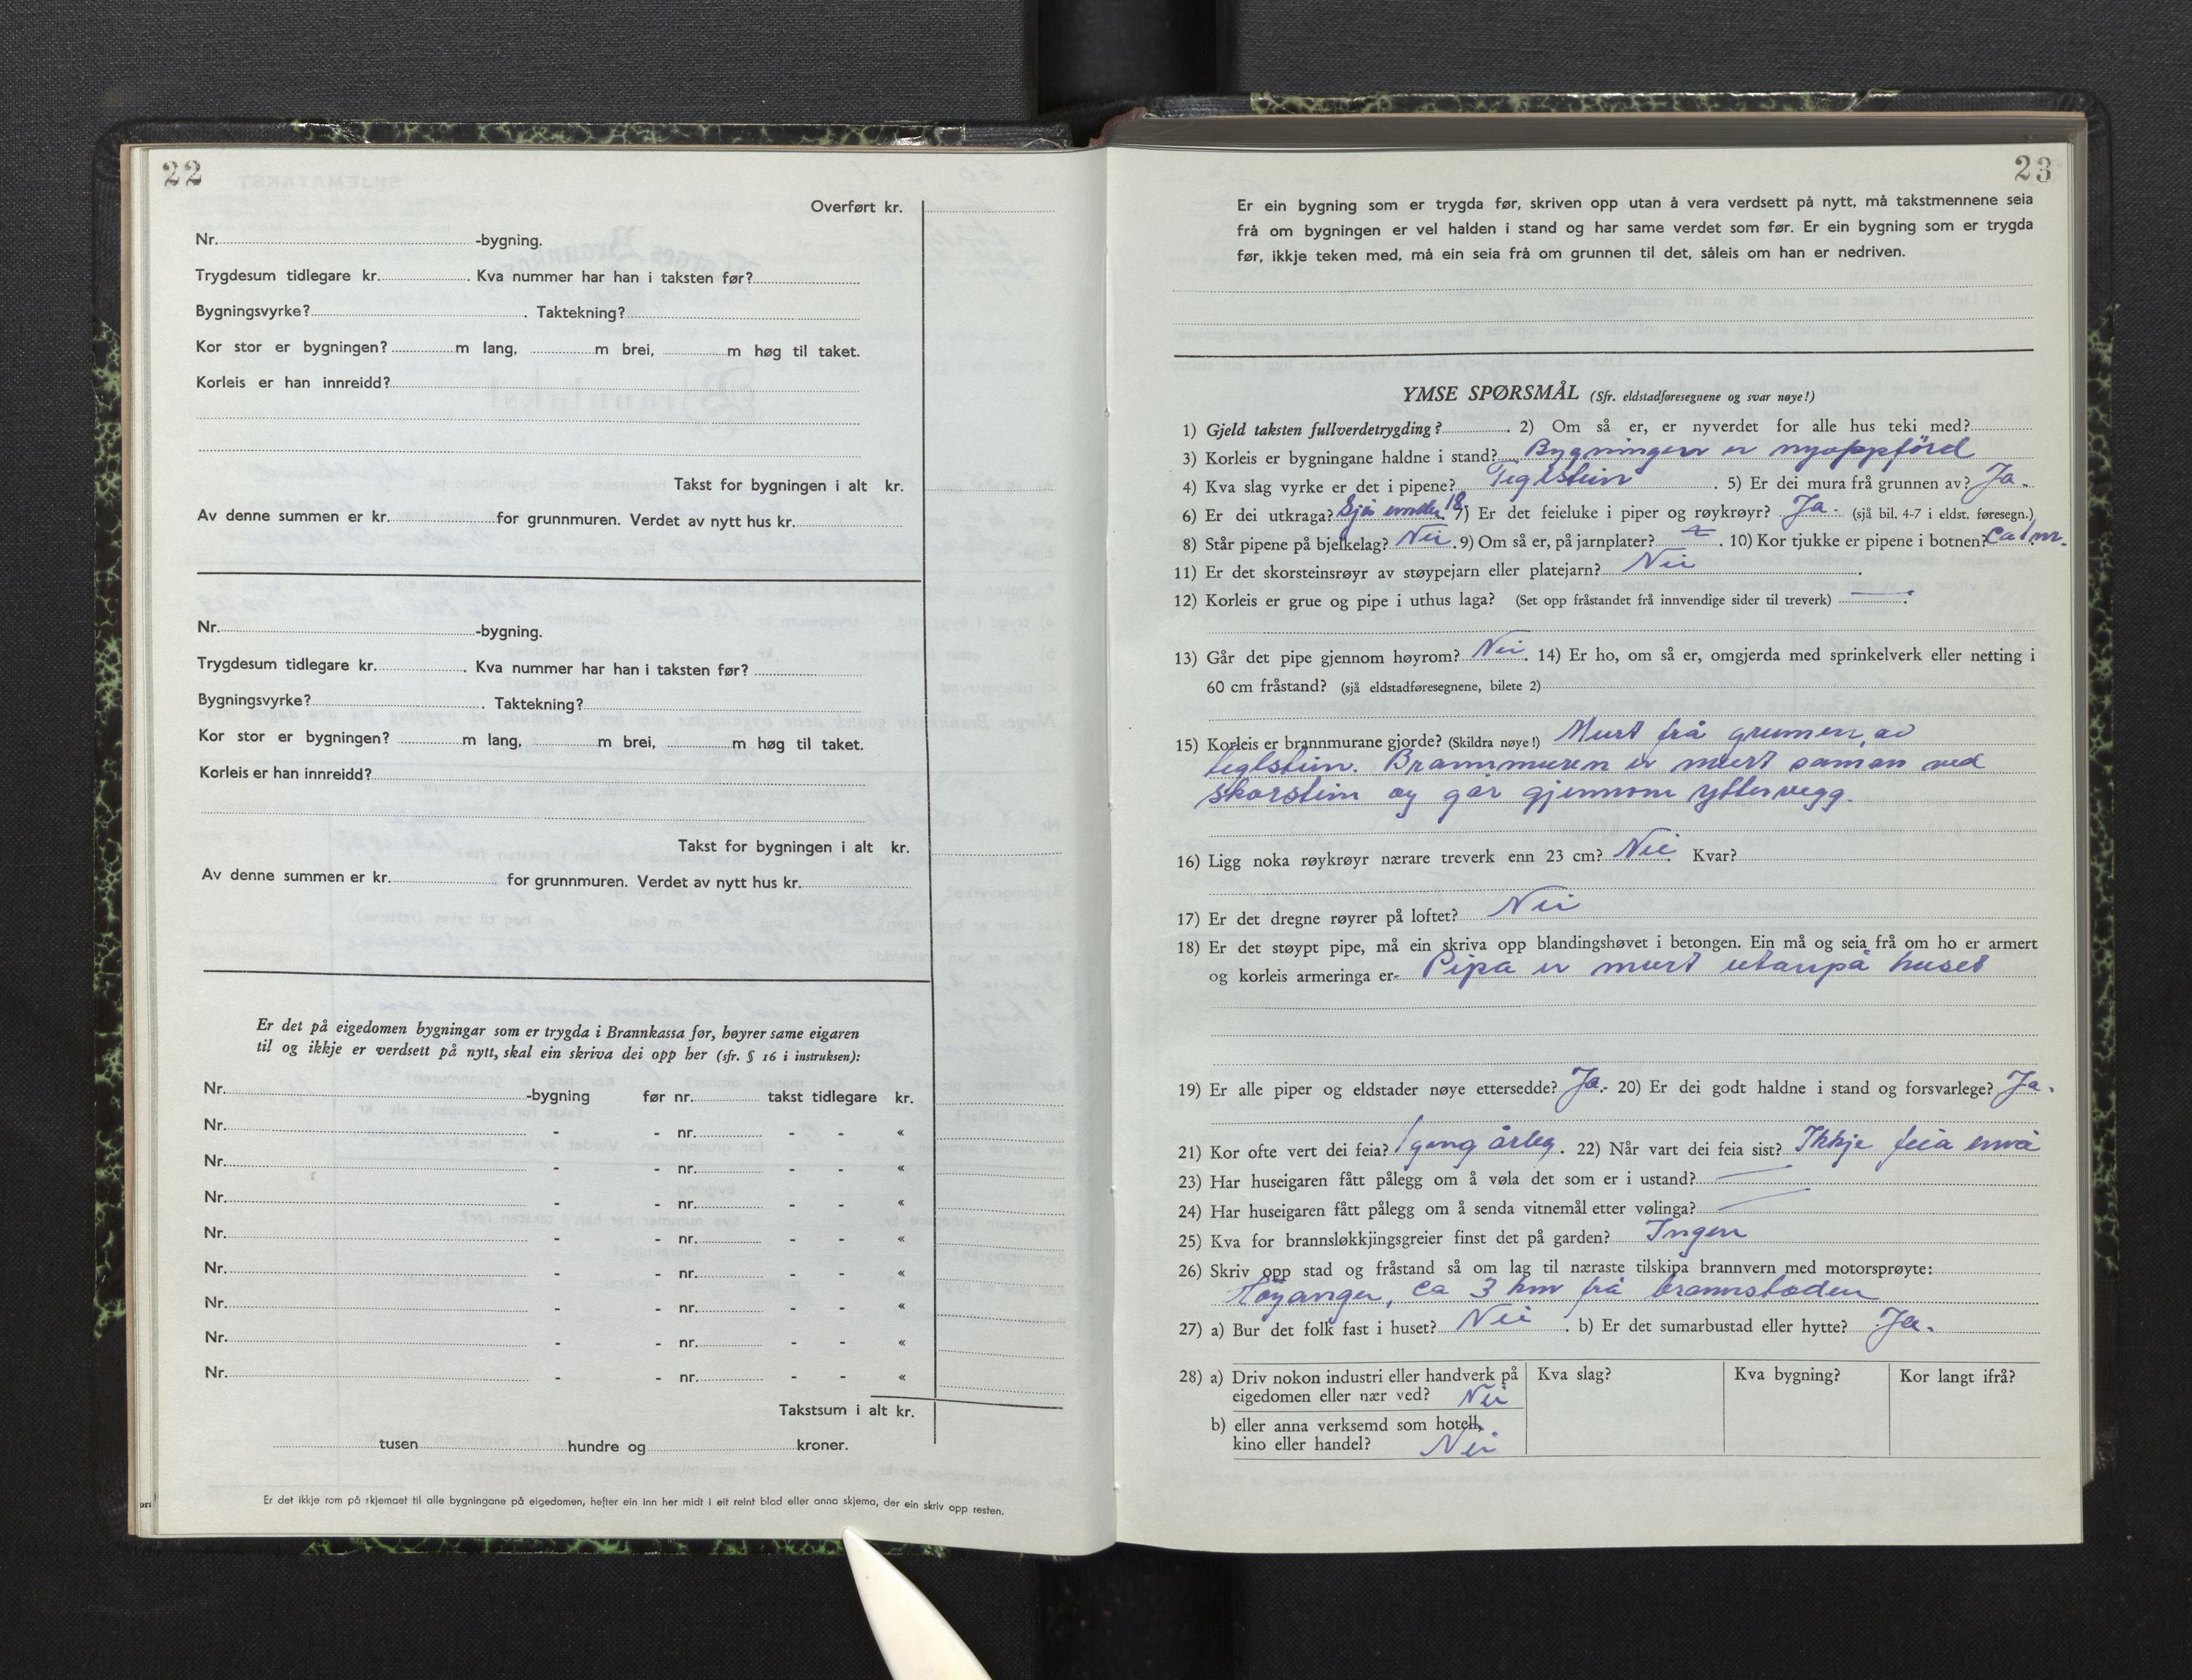 22
Overført kr.
Nr. -bygning.
Trygdesum tidlegare kr. . Kva nummer har han i taksten før?
Bygningsvyrke? . Taktekning?
Kor stor er bygningen? m lang, m brei, m høg til taket.
Korleis er han innreidd?
Takst for bygningen i alt kr.
Av denne summen er kr. for grunnmuren. Verdet av nytt hus kr.
Nr. -bygning.
Trygdesum tidlegare kr. . Kva nummer har han i taksten før?
Bygningsvyrke? . Taktekning?
Kor stor er bygningen? m lang, m brei, m høg til taket.
Korleis er han innreidd?
Takst for bygningen i alt kr.
Av denne summen er kr. for grunnmuren. Verdet av nytt hus kr.
Er det på eigedomen bygningar som er trygda i Brannkassa før, høyrer same eigaren
til og ikkje er verdsett på nytt, skal ein skriva dei opp her (sfr. § 16 i instruksen):
Nr. -bygning før nr. takst tidlegare kr.
Nr. - - nr. - - «
Nr. - - nr. - - «
Nr. - - nr. - - «
Nr. - - nr. - - «
Nr. - - nr. - - «
Nr. - - nr. - - «
Nr. - - nr. - - «
Nr. - - nr. - - «
Takstsum i alt kr.
tusen hundre og kroner.
Er det ikkje rom på skjemaet til alle bygningane på eigedomen, hefter ein inn her midt i eit reint blad eller anna skjema, der ein skriv opp resten.
23
Er ein bygning som er trygda før, skriven opp utan å vera verdsett på nytt, må takstmennene seia
frå om bygningen er vel halden i stand og har same verdet som før. Er ein bygning som er trygda
før, ikkje teken med, må ein seia frå om grunnen til det, såleis om han er nedriven.
YMSE SPØRSMÅL (Sfr. eldstadføresegnene og svar nøye!)
1) Gjeld taksten fullverdetrygding? . 2) Om så er, er nyverdet for alle hus teki med?
3) Korleis er bygningane haldne i stand? Bygningen er nyoppförd
4) Kva slag vyrke er det i pipene? Teglstein . 5) Er dei mura frå grunnen av? Ja.
6) Er dei utkraga? Sjå under 18 7) Er det feieluke i piper og røykrøyr? Ja - (sjå bil. 4-7 i eldst. føresegn.)
8) Står pipene på bjelkelag? Nei . 9) Om så er, på jarnplater? . 10) Kor tjukke er pipene i botnen? Ca 1 m.
11) Er det skorsteinsrøyr av støypejarn eller platejarn? Nei .
12) Korleis er grue og pipe i uthus laga? (Set opp fråstandet frå innvendige sider til treverk) — .
13) Går det pipe gjennom høyrom? Nei . 14) Er ho, om så er, omgjerda med sprinkelverk eller netting i
60 cm fråstand? (sjå eldstadføresegnene, bilete 2)
15) Korleis er brannmurane gjorde? (Skildra nøye!) Murt frå grunnen av
teglstein. Brannmuren er murt saman med
skorstein og går gjennom yttervegg.
16) Ligg noka røykrøyr nærare treverk enn 23 cm? Nei. Kvar?
17) Er det dregne røyrer på loftet? Nei
18) Er det støypt pipe, må ein skriva opp blandingshøvet i betongen. Ein må og seia frå om ho er armert
og korleis armeringa er. Pipa er murt utanpå huset
19) Er alle piper og eldstader nøye ettersedde? Ja. 20) Er dei godt haldne i stand og forsvarlege? Ja.
21) Kor ofte vert dei feia? 1 gong årleg . 22) Når vart dei feia sist? Ikkje feia ennå
23) Har huseigaren fått pålegg om å vøla det som er i ustand? —
24) Har huseigaren fått pålegg om å senda vitnemål etter vølinga? —
25) Kva for brannsløkkjingsgreier finst det på garden? Ingen
26) Skriv opp stad og fråstand så om lag til næraste tilskipa brannvern med motorsprøyte:
Høyanger, ca 3 km frå brannstaden
27) a) Bur det folk fast i huset? Nei . b) Er det sumarbustad eller hytte? Ja.
28) a) Driv nokon industri eller handverk på Kva slag? Kva bygning? Kor langt ifrå?
eigedomen eller nær ved? Nei
b) eller anna verksemd som hotell,
kino eller handel? Nei